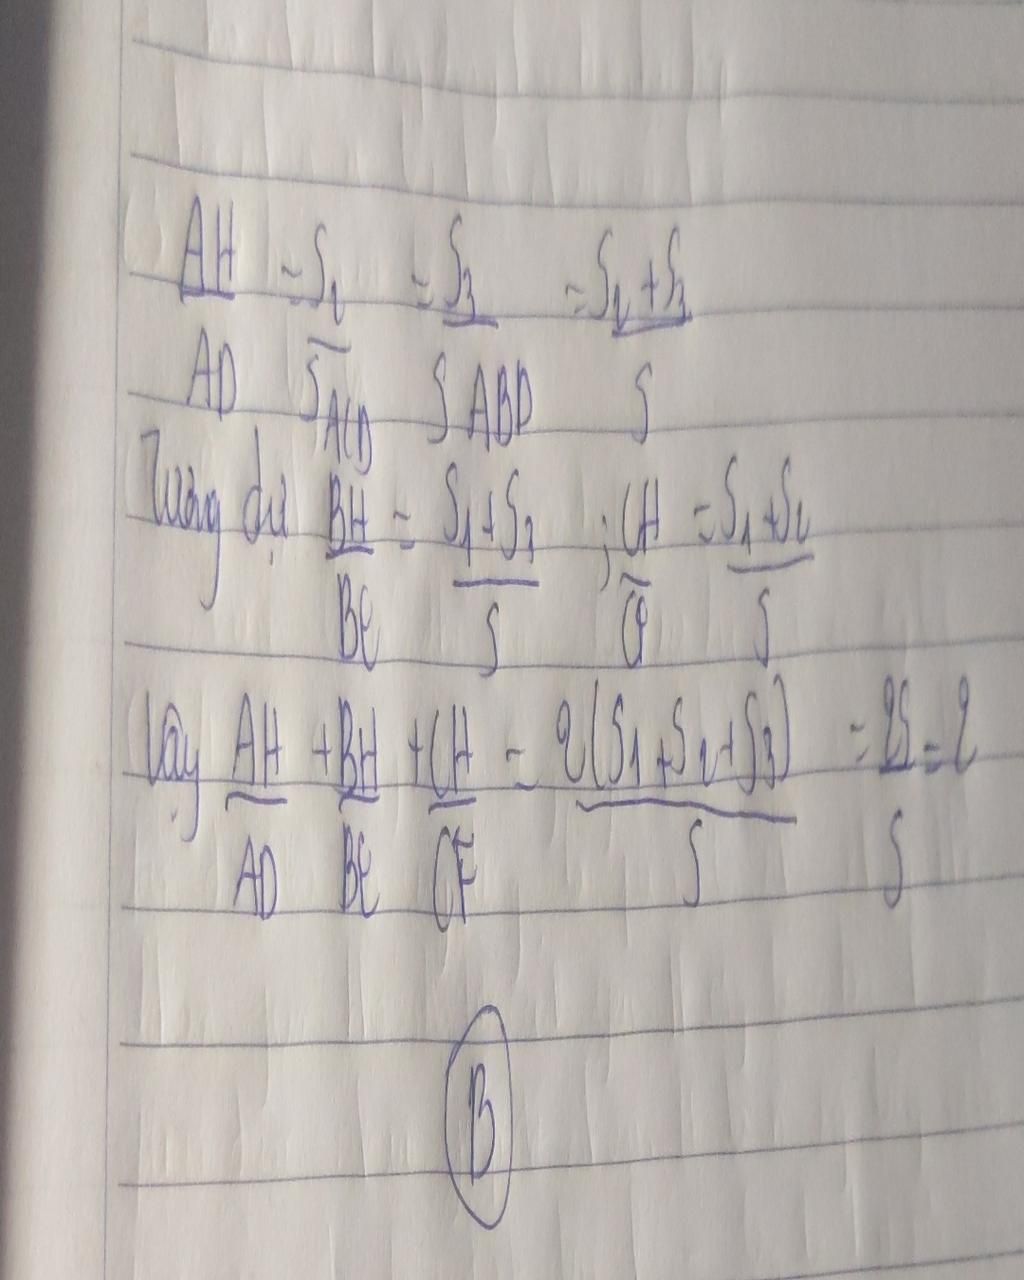 AH/AD = S2/S ACD = S3/S ABD = (S2 + S3)/S
Tương tự BH/BE = (S1 + S3)/S ; CH/CF = (S1 + S2)/S
Vậy AH/AD + BH/BE + CH/CF = 2(S1 + S2 + S3)/S = 2S/S = 2
B